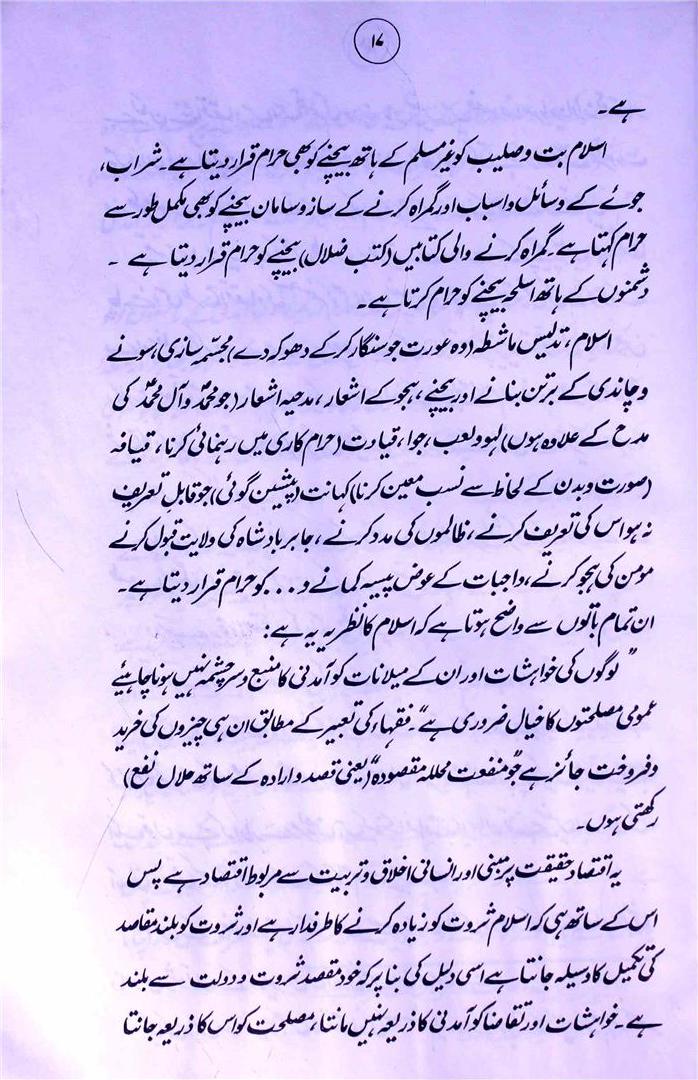 ۱۷
ہے۔
اسلام بت و صلیب کو غیر مسلم کے ہاتھ بیچنے کو بھی حرام قرار دیتا ہے۔ شراب،
جوئے کے وسائل و اسباب اور گمراہ کرنے کے ساز و سامان بیچنے کو بھی مکمل طور سے
حرام کہتا ہے۔ گمراہ کرنے والی کتابیں (کتب ضلال) بیچنے کو حرام قرار دیتا ہے ۔
دشمنوں کے ہاتھ اسلحہ بیچنے کو حرام کرتا ہے۔
اسلام، تدلیس ماشطہ (وہ عورت جو سنگار کر کے دھوکہ دے) مجسمہ سازی، سونے
و چاندی کے برتن بنانے اور بیچنے، ہجو کے اشعار، مدحیہ اشعار (جو محمدؐ و آل محمدؐ کی
مدح کے علاوہ ہوں) لہو و لعب، جوا، قیادت (حرام کاری میں رہنمائی کرنا، قیافہ
(صورت و بدن کے لحاظ سے نسب معین کرنا) کہانت (پیشین گوئی) جو قابل تعریف
نہ ہو اس کی تعریف کرنے، ظالموں کی مدد کرنے، جابر بادشاہ کی ولایت قبول کرنے
مومن کی ہجو کرنے، واجبات کے عوض پیسہ کمانے و... کو حرام قرار دیتا ہے۔
ان تمام باتوں سے واضح ہوتا ہے کہ اسلام کا نظریہ یہ ہے:
”لوگوں کی خواہشات اور ان کے میلانات کو آمدنی کا منبع و سرچشمہ نہیں ہونا چاہیئے
عمومی مصلحتوں کا خیال ضروری ہے“۔ فقہاء کی تعبیر کے مطابق ان ہی چیزوں کی خرید
و فروخت جائز ہے جو ”منفعت محللہ مقصودہ“ (یعنی قصد و ارادہ کے ساتھ حلال نفع)
رکھتی ہوں۔
یہ اقتصاد حقیقت پر مبنی اور انسانی اخلاق و تربیت سے مربوط اقتصاد ہے پس
اس کے ساتھ ہی کہ اسلام ثروت کو زیادہ کرنے کا طرفدار ہے اور ثروت کو بلند مقاصد
کی تکمیل کا وسیلہ جانتا ہے اسی دلیل کی بنا پر کہ خود مقصد ثروت و دولت سے بلند
ہے۔ خواہشات اور تقاضا کو آمدنی کا ذریعہ نہیں مانتا، مصلحت کو اس کا ذریعہ جانتا